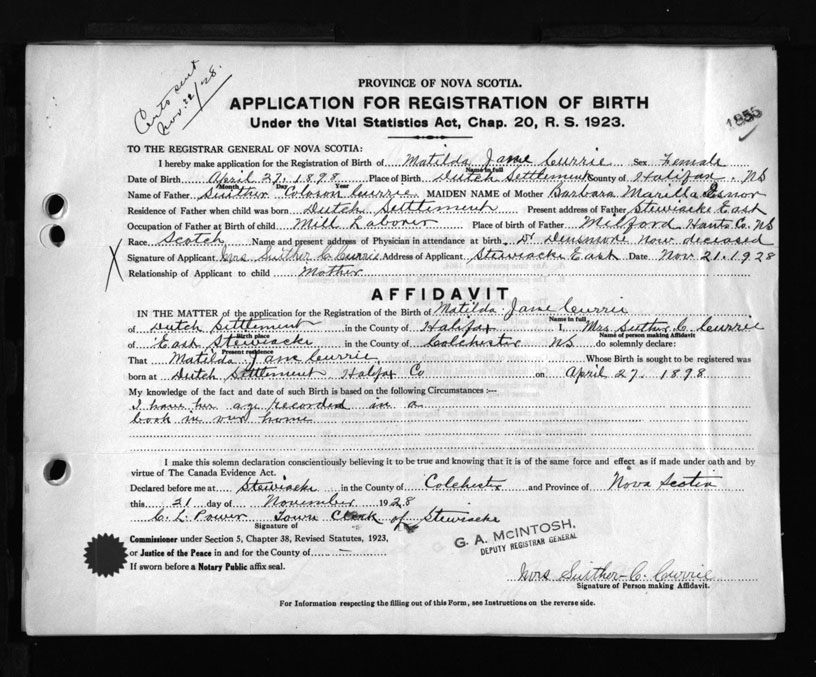 Certs sent
Nov. 22/28.
1855
PROVINCE OF NOVA SCOTIA.
APPLICATION FOR REGISTRATION OF BIRTH
Under the Vital Statistics Act, Chap. 20, R. S. 1923.
TO THE REGISTRAR GENERAL OF NOVA SCOTIA:
I hereby make application for the Registration of Birth of Matilda Jane Currie Sex Female
Name in full
Date of Birth April 27. 1898 Place of Birth Dutch Settlement County of Halifax. NS
Month Day Year
Name of Father Suither Currie MAIDEN NAME of Mother Barbara Marilla
Residence of Father when child was born Dutch Settlement Present address of Father Stewiacke East
Occupation of Father at Birth of child Mill Laborer Place of birth of Father Milford Hants Co. NS
Race Scotch Name and present address of Physician in attendance at birth Dr Densmore now deceased
Signature of Applicant Mrs Suither C. Currie Address of Applicant Stewiacke East Date Nov 21. 1928
X
Relationship of Applicant to child Mother
AFFIDAVIT
IN THE MATTER of the application for the Registration of the Birth of Matilda Jane Currie
Name in full
of Dutch Settlement in the County of Halifax I, Mrs Suither C Currie
Birth place Name of person making Affidavit
of East Stewiacke in the County of Colchester NS do solemnly declare:
Present residence
That Matilda Jane Currie Whose Birth is sought to be registered was
born at Dutch Settlement Halifax Co on April 27. 1898
My knowledge of the fact and date of such Birth is based on the following Circumstances :—
I have her age recorded in a
book in our home
I make this solemn declaration conscientiously believing it to be true and knowing that it is of the same force and effect as if made under oath and by
virtue of The Canada Evidence Act.
Declared before me at Stewiacke in the County of Colchester and Province of Nova Scotia
this 21 day of November 1928
C. L. Power Town Clerk of Stewiacke
Signature of
Commissioner under Section 5, Chapter 38, Revised Statutes, 1923,
or Justice of the Peace in and for the County of —
If sworn before a Notary Public affix seal.
G. A. McINTOSH,
DEPUTY REGISTRAR GENERAL
Mrs Suither C. Currie
Signature of Person making Affidavit.
For Information respecting the filling out of this Form, see Instructions on the reverse side.